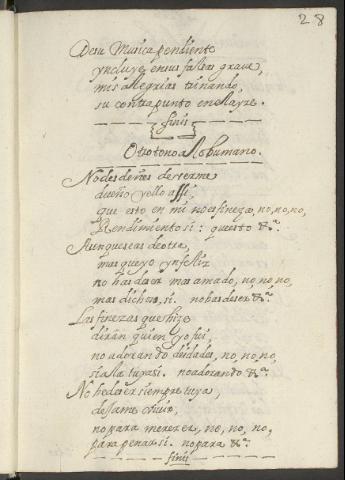 28
De su Musica pendiente
yncluye en sus falsas grave,
mis alegrias trinando,
su contrapunto en el ayre.
finis
Otro tono a lo humano.
No desdeñes de verme
dueño y ello assi,
que esto en mi no es fineza, no, no, no,
Rendimiento si: que esto &ª.
Aunque seas de otro,
mas que yo ynfeliz
no has de ser mas amado, no, no, no,
mas dichoso, si. no has de ser &ª.
Las finezas que hize
diran quien yo fui,
no adorando deidades, no, no, no,
si a la tuya si. no adorando &ª.
No he de ser siempre tuya,
dexame vivir,
no para merezer, no, no, no,
para penar si. no para &ª.
finis